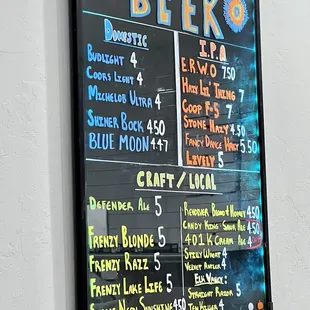 BEER
DOMESTIC
BUDLIGHT 4
COORS LIGHT 4
MICHELOB ULTRA 4
SHINER BOCK 4.50
BLUE MOON 4.47
I.P.A
E.R.W.O 7.50
HAZY LIL' THING 7
COOP F-5 7
STONE HAZY 4.50
FANCY DANCE HAZY 5.50
LIVELY 5
CRAFT / LOCAL
DEFENDER ALE 5
FRENZY BLONDE 5
FRENZY RAZZ 5
FRENZY LAKE LIFE 5
NEON SUNSHINE 4.50
BLOOD & HONEY 4.50
CANDY KING SOUR ALE 4.50
401K CREAM ALE 4
WHEAT 4
VELVET 4
ELK VALLEY:
STRAIGHT RAZOR 5
TEN KILLER 4